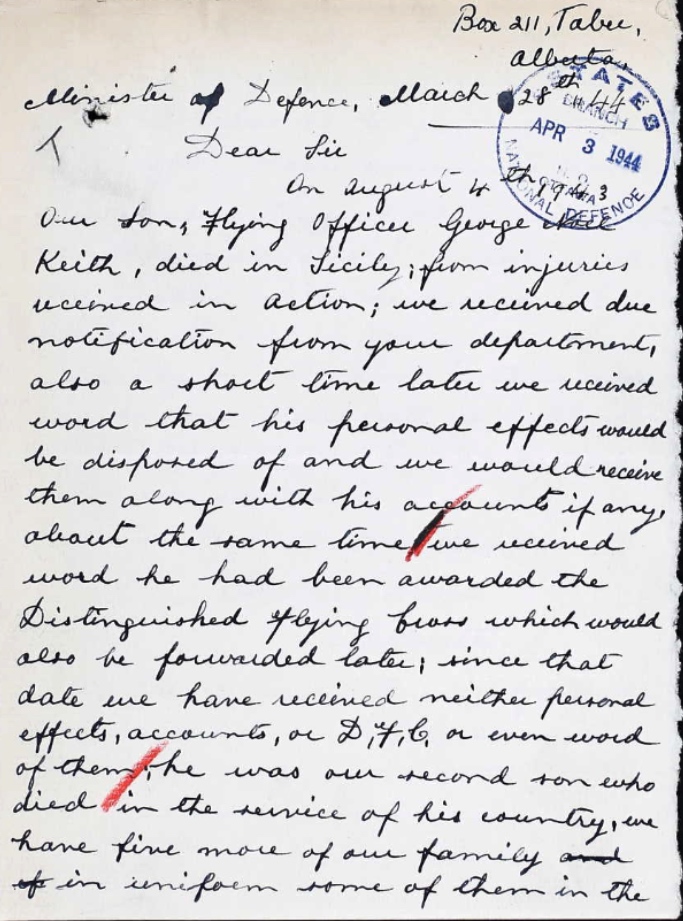 Box 211, Taber,
Alberta,
Minister of Defence, March 28th 44
Dear Sir
On August 4th 1943
Our son, Flying Officer George Noel
Keith, died in Sicily; from injuries
received in action; we received due
notification from your department,
also a short time later we received
word that his personal effects would
be disposed of and we would receive
them along with his accounts if any,
about the same time we received
word he had been awarded the
Distinguished Flying Cross which would
also be forwarded later; since that
date we have received neither personal
effects, accounts, or D,F,C, or even word
of them; he was our second son who
died in the service of his country, we
have five more of our family and
of in uniform some of them in the
ESTATES
BRANCH
APR 3 1944
OTTAWA
NATIONAL DEFENCE